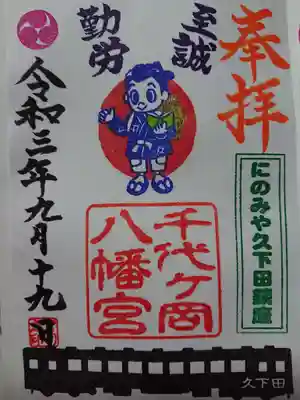 奉拝
至誠
勤労
にのみや久下田
千代ヶ岡
八幡宮
令和三年九月十九日
久下田